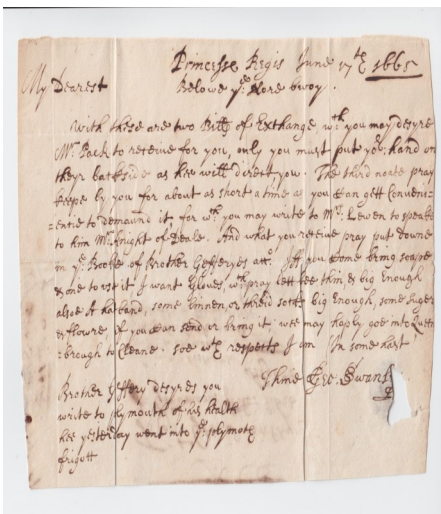 Princesse Regis June 17th 1665
My Dearest
Belowe ye Nore bwoy.
With these are two Bills of Exchange, wch you may desyre
Mr Pack to receive for you, only you must put yor hand on
theyr backside as hee will direct you. The third note pray
keepe by you for about as short a time as you can gett Conveni-
=entie to demaund it for wch you may write to Mr. Lewen to speake
to him Mr Knight of Deale. And what you receive pray put downe
in ye Booke of Brother Gefferyes acco. Iff you come bring soape
& one to use it I want Gloves, wch pray lett bee thin, & big Enough
alsoe A hatband, some Linnen, or thrid sockes big Enough, some Suger
& flowre if you can send or bring it. wee may haply goe into Quin
=brough to Cleane. soe wth respects I am In some hast
Thine Geo: Swan
Brother Jeffery desyres you
write to plymouth of his health
hee yesterday went into ye plymoth
frigott